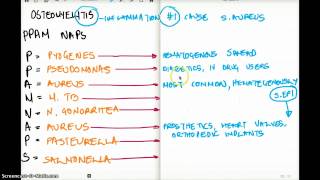 OSTEOMYELITIS - INFLAMMATION #1 CAUSE S. AUREUS
PPAM NAPS
P = PYOGENES HEMATOGENOUS SPREAD
P = PSEUDOMONAS DIABETICS, IV DRUG USERS
A = AUREUS MOST COMMON, HEMATOGENOUSLY
M = M. TB S. EPI
N = N. GONORRHEA
A = AUREUS PROSTHETICS, HEART VALVES,
P = PASTEURELLA ORTHOPEDIC IMPLANTS
S = SALMONELLA